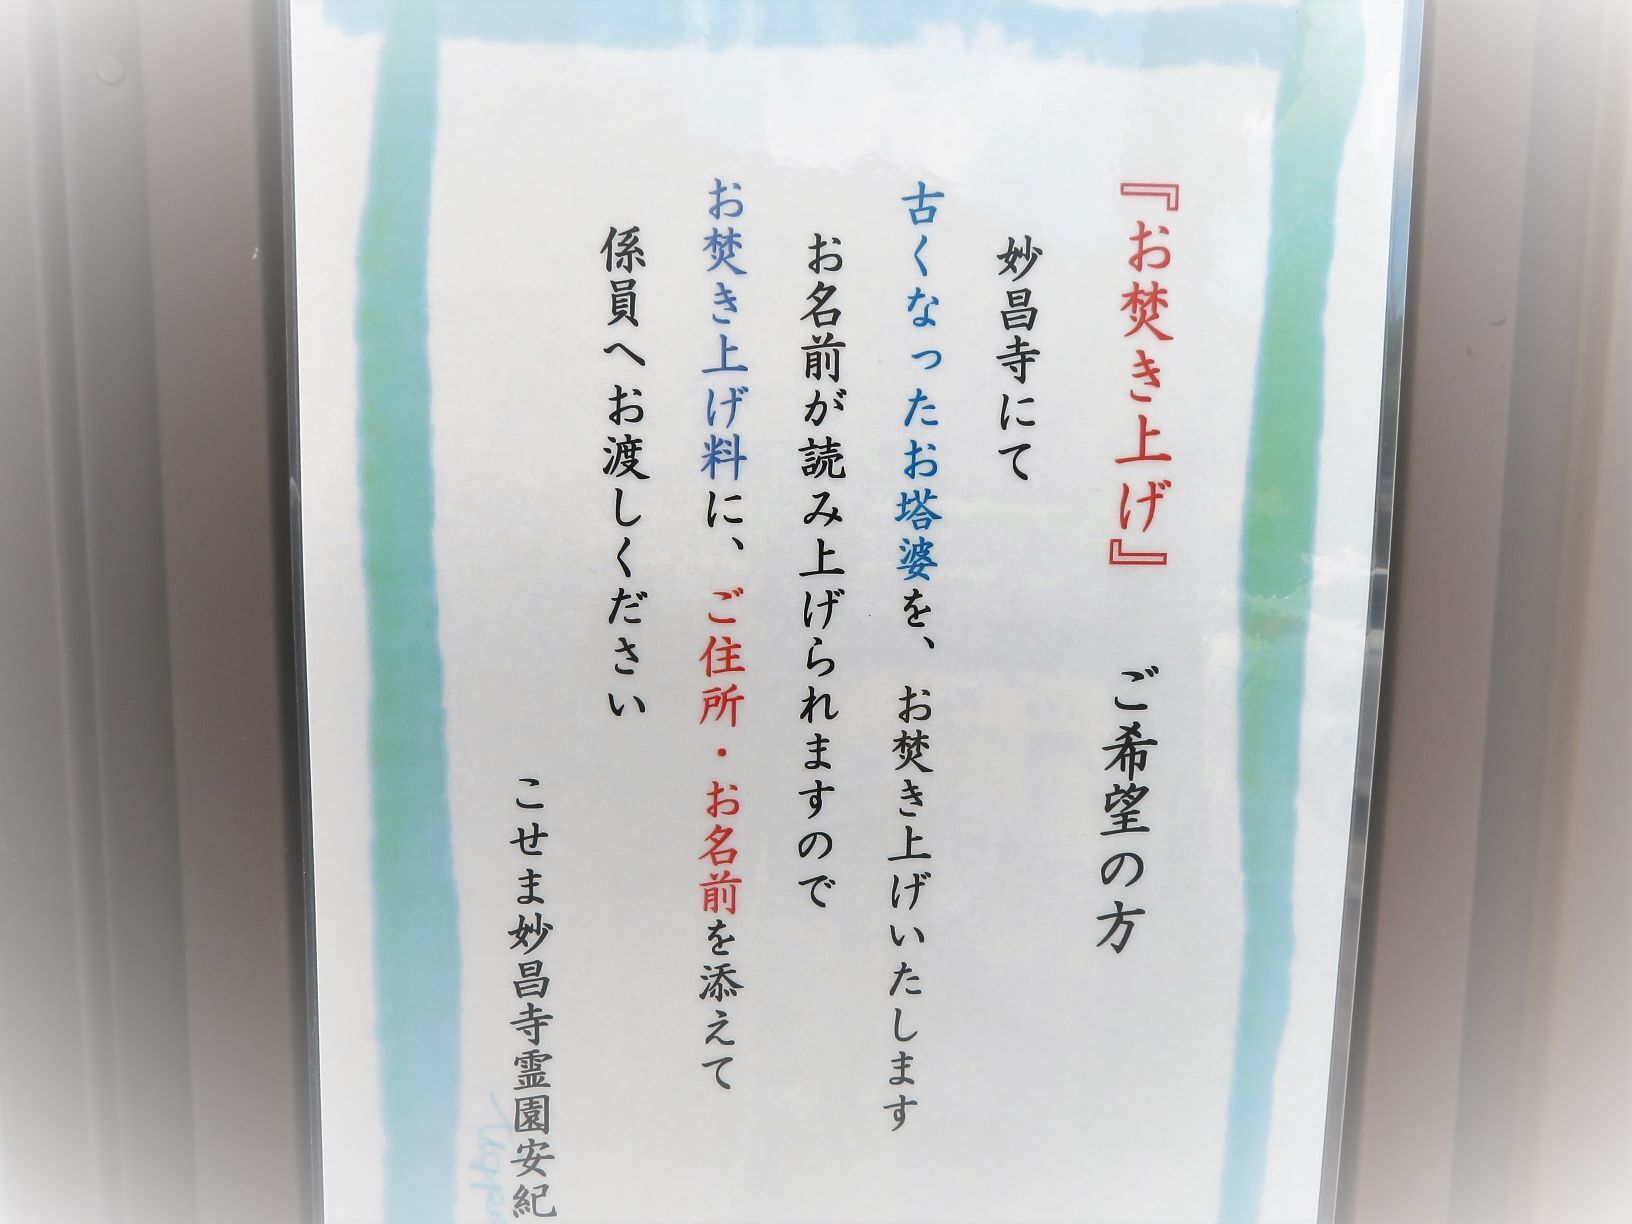 『お焚き上げ』　ご希望の方
妙昌寺にて
古くなったお塔婆を、お焚き上げいたします
お名前が読み上げられますので
お焚き上げ料に、ご住所・お名前を添えて
係員へお渡しください
こせま妙昌寺霊園安紀